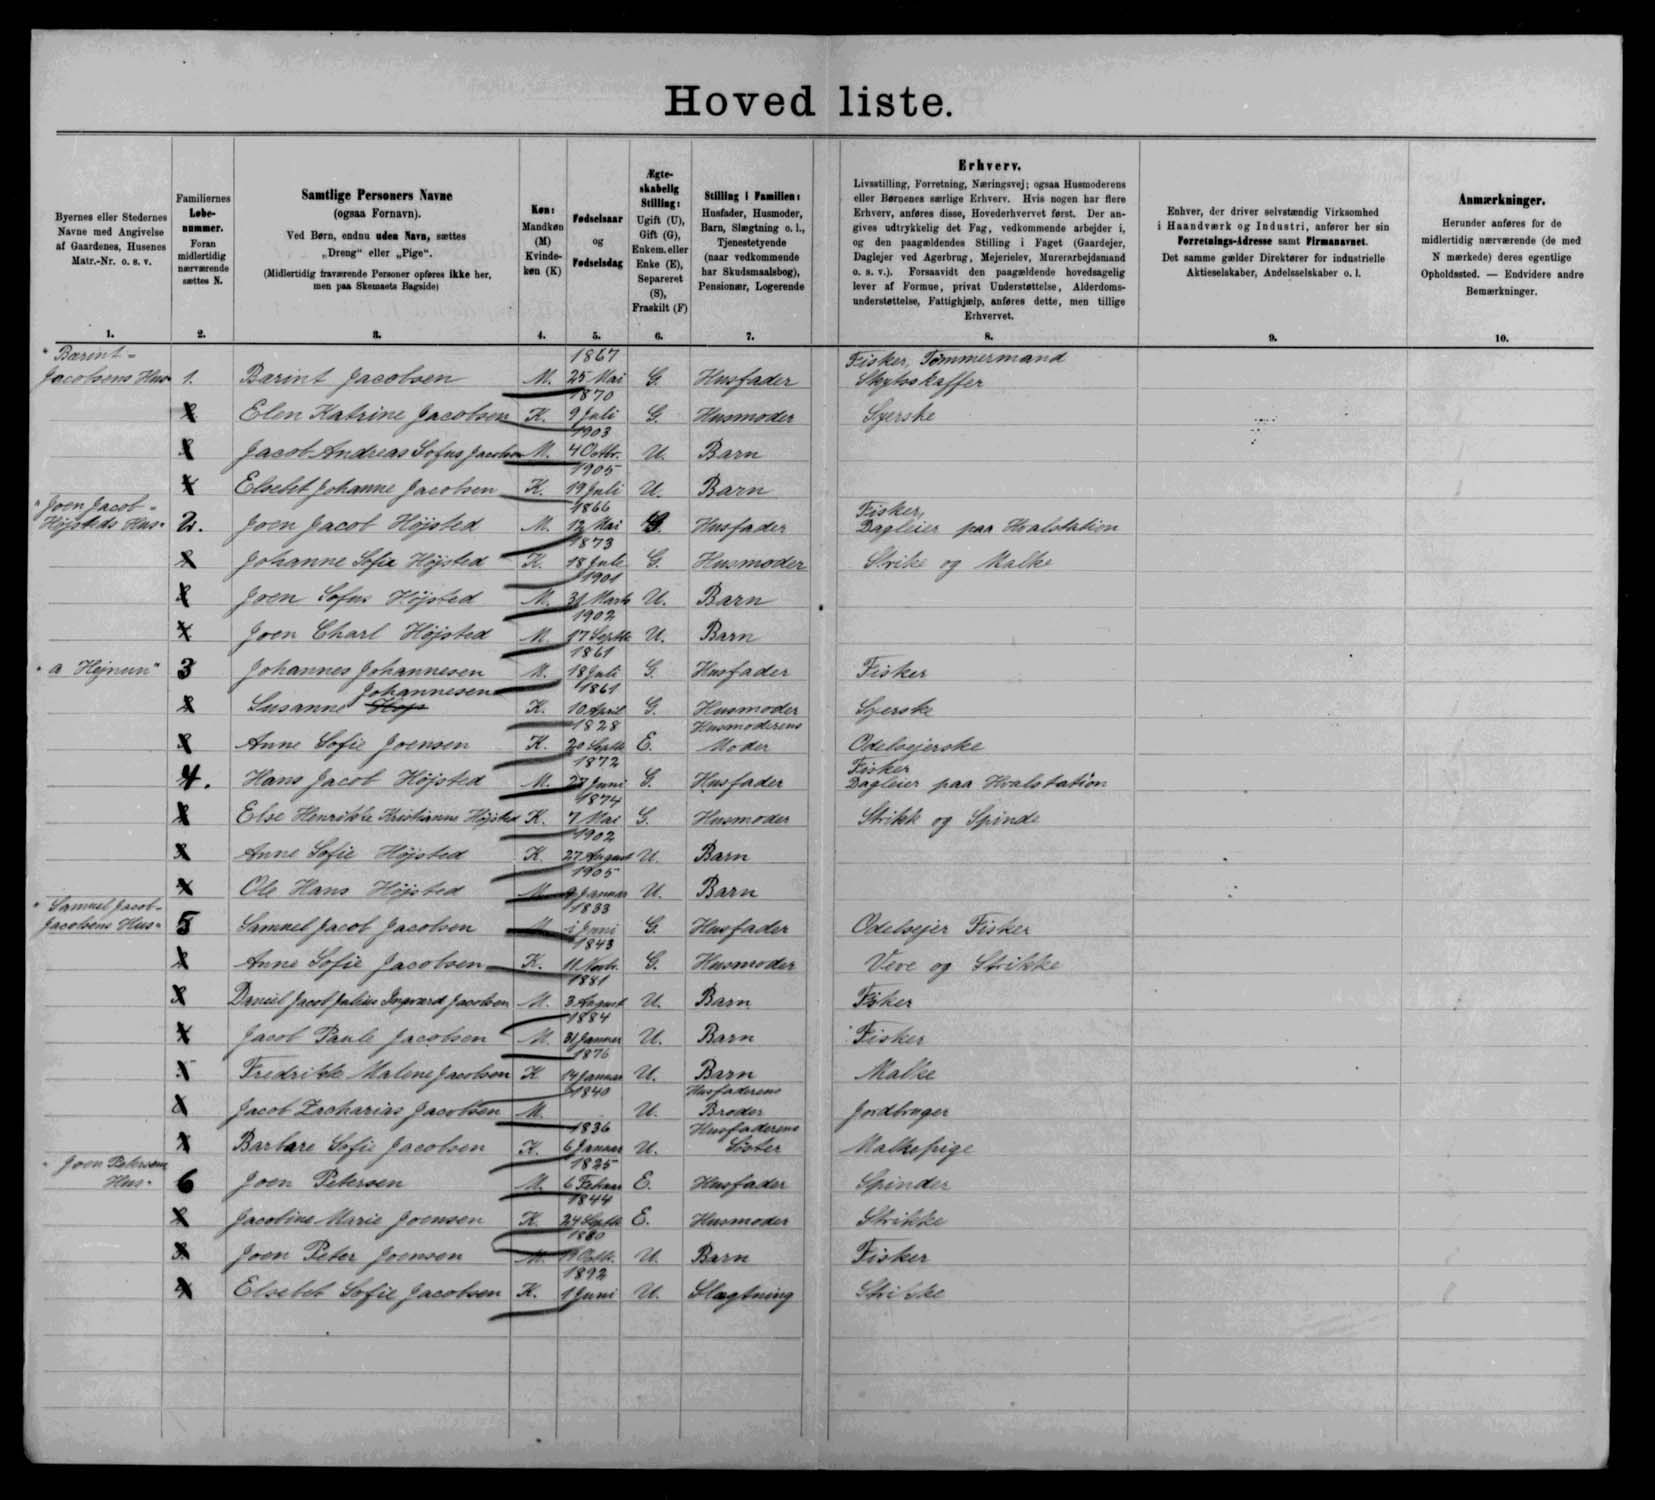 Hovedliste.
Byernes eller Stedernes Navne med Angivelse af Gaardenes, Husenes Matr.-Nr. o. s. v.
Familiernes Løbenummer. Foran midlertidig nærværende sættes N.
Samtlige Personers Navne
(ogsaa Fornavn).
Ved Børn, endnu uden Navn, sættes
„Dreng“ eller „Pige“.
(Midlertidig fraværende Personer opføres ikke her,
men paa Skemaets Bagside)
Køn: Mandkøn (M) Kvindekøn (K)
Fødselsaar og Fødselsdag
Ægteskabelig Stilling: Ugift (U), Gift (G), Enkem. eller Enke (E), Separeret (S), Fraskilt (F)
Stilling i Familien: Husfader, Husmoder, Barn, Slægtning o. l., Tjenestetyende (naar vedkommende har Skudsmaalsbog), Pensionær, Logerende
Erhverv.
Livsstilling, Forretning, Næringsvej; ogsaa Husmoderens
eller Børnenes særlige Erhverv. Hvis nogen har flere
Erhverv, anføres disse, Hovederhvervet først. Der an-
gives udtrykkelig det Fag, vedkommende arbejder i,
og den paagældendes Stilling i Faget (Gaardejer,
Daglejer ved Agerbrug, Mejerielev, Murerarbejdsmand
o. s. v.). Forsaavidt den paagældende hovedsagelig
lever af Formue, privat Understøttelse, Alderdoms-
understøttelse, Fattighjælp, anføres dette, men tillige
Erhvervet.
Enhver, der driver selvstændig Virksomhed
i Haandværk og Industri, anfører her sin
Forretnings-Adresse samt Firmanavnet.
Det samme gælder Direktører for industrielle
Aktieselskaber, Andelsselskaber o. l.
Anmærkninger.
Herunder anføres for de
midlertidig nærværende (de med
N mærkede) deres egentlige
Opholdssted. — Endvidere andre
Bemærkninger.
1. 2. 3. 4. 5. 6. 7. 8. 9. 10.
"Barint- 1867 Fisker, Tømmermand
Jacobsens Hus" 1. Barint Jacobsen M. 25 Mai G. Husfader Skydsskaffer
1870
Elen Katrine Jacobsen K. 9 Juli G. Husmoder Syerske
1903
Jacob Andreas Sofus Jacobsen M. 4 Octbr. U. Barn
1905
Elsebet Johanne Jacobsen K. 19 Juli U. Barn
"Joen Jacob- 1866 Fisker,
Højsteds Hus" 2. Joen Jacob Højsted M. 12 Mai G. Husfader Dagleier paa Hvalstation
1873
Johanne Sofie Højsted K. 18 Juli G. Husmoder Strike og Malke
1901
Joen Sofus Højsted M. 31 Marts U. Barn
1902
Joen Charl Højsted M. 17 Septb U. Barn
1861
"a Hejnun" 3 Johannes Johannesen M. 18 Juli G. Husfader Fisker
Johannesen 1861
Susanne K. 10 April G. Husmoder Syerske
1828 Husmoderens
Anne Sofie Joensen K. 20 Septb E. Moder Odelsejerske
1872 Fisker
4. Hans Jacob Højsted M. 27 Juni G. Husfader Dagleier paa Hvalstation
1874
Else Henrikke Kristianne Højsted K. 7 Mai G. Husmoder Strikk og Spinde
1902
Anne Sofie Højsted K. 27 August U. Barn
1905
Ole Hans Højsted M. 9 Januar U. Barn
"Samuel Jacob- 1833
Jacobsens Hus" 5 Samuel Jacob Jacobsen M. 1 Juni G. Husfader Odelsejer Fisker
1843
Anne Sofie Jacobsen K. 11 Novb. G. Husmoder Veve og Strikke
1881
Daniel Jacob Julius Ingvard Jacobsen M. 3 August U. Barn Fisker
1884
Jacob Paule Jacobsen M. 31 Januar U. Barn Fisker
1876
Fredrikke Malene Jacobsen K 14 Januar U. Barn Malke
1840 Husfaderens
Jacob Zacharias Jacobsen M. U. Broder Jordbruger
1836 Husfaderens
Barbare Sofie Jacobsen K. 6 Januar U. Søster Malkepige
"Joen Petersens 1825
Hus" 6 Joen Petersen M. 6 Febuar E. Husfader Spinder
1844
Jacobine Marie Joensen K. 24 Septb E. Husmoder Strikke
1880
Joen Peter Joensen M. 19 Octb. U. Barn Fisker
1892
Elsebet Sofie Jacobsen K. 1 Juni U. Slægtning Strikke